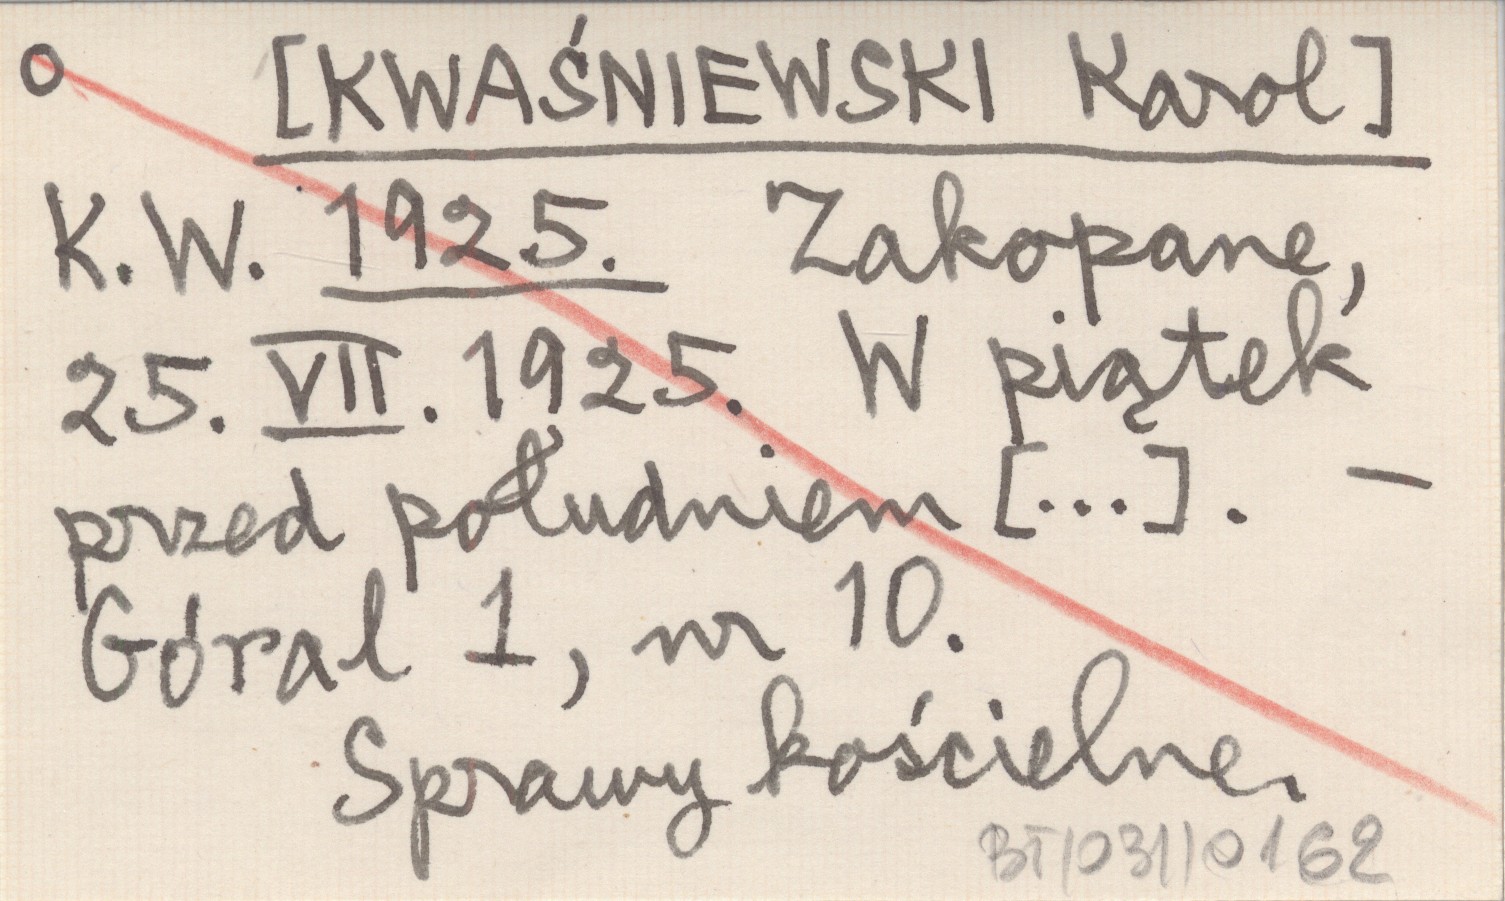 o [KWAŚNIEWSKI Karol]
K.W. 1925. Zakopane,
25. VII. 1925. W piątek
przed południem [...]. —
Góral 1, nr 10.
Sprawy kościelne.
BT/031/0162